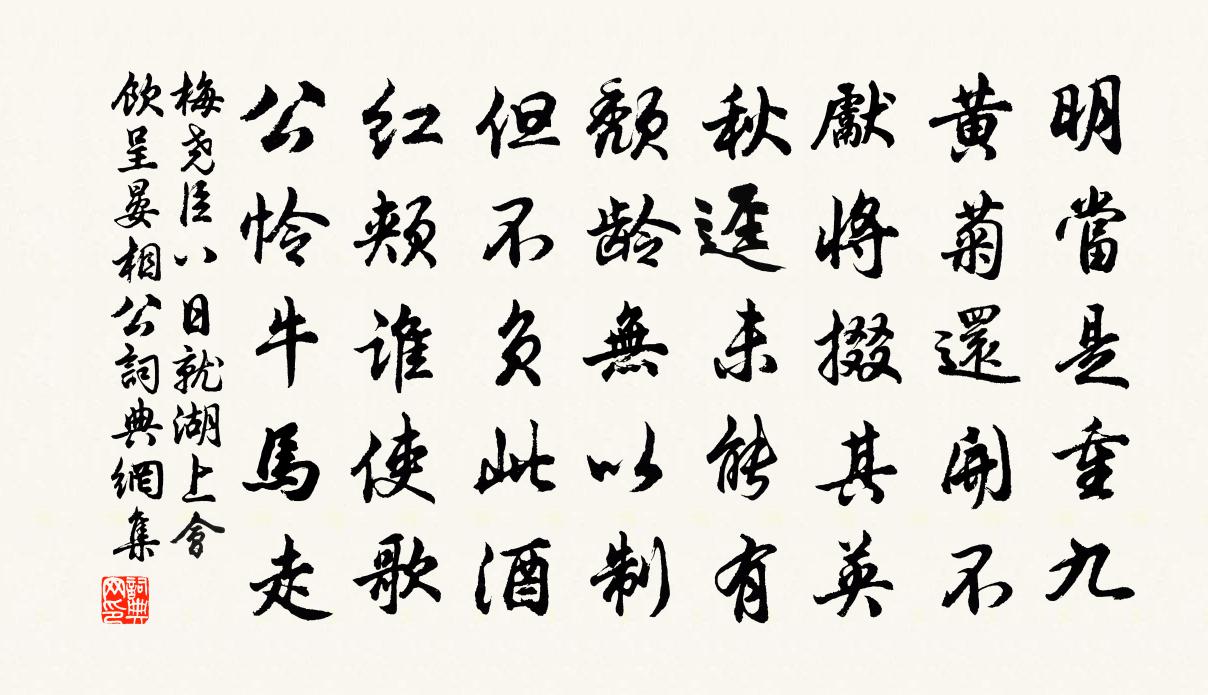 明當是重九
黃菊還開不
獻將掇其英
秋遲未能有
頹齡無以制
但不負此酒
红頰谁使歌
公怜牛馬走
梅尧臣八日就湖上會
飲呈晏相公詞典網集
詞典网印